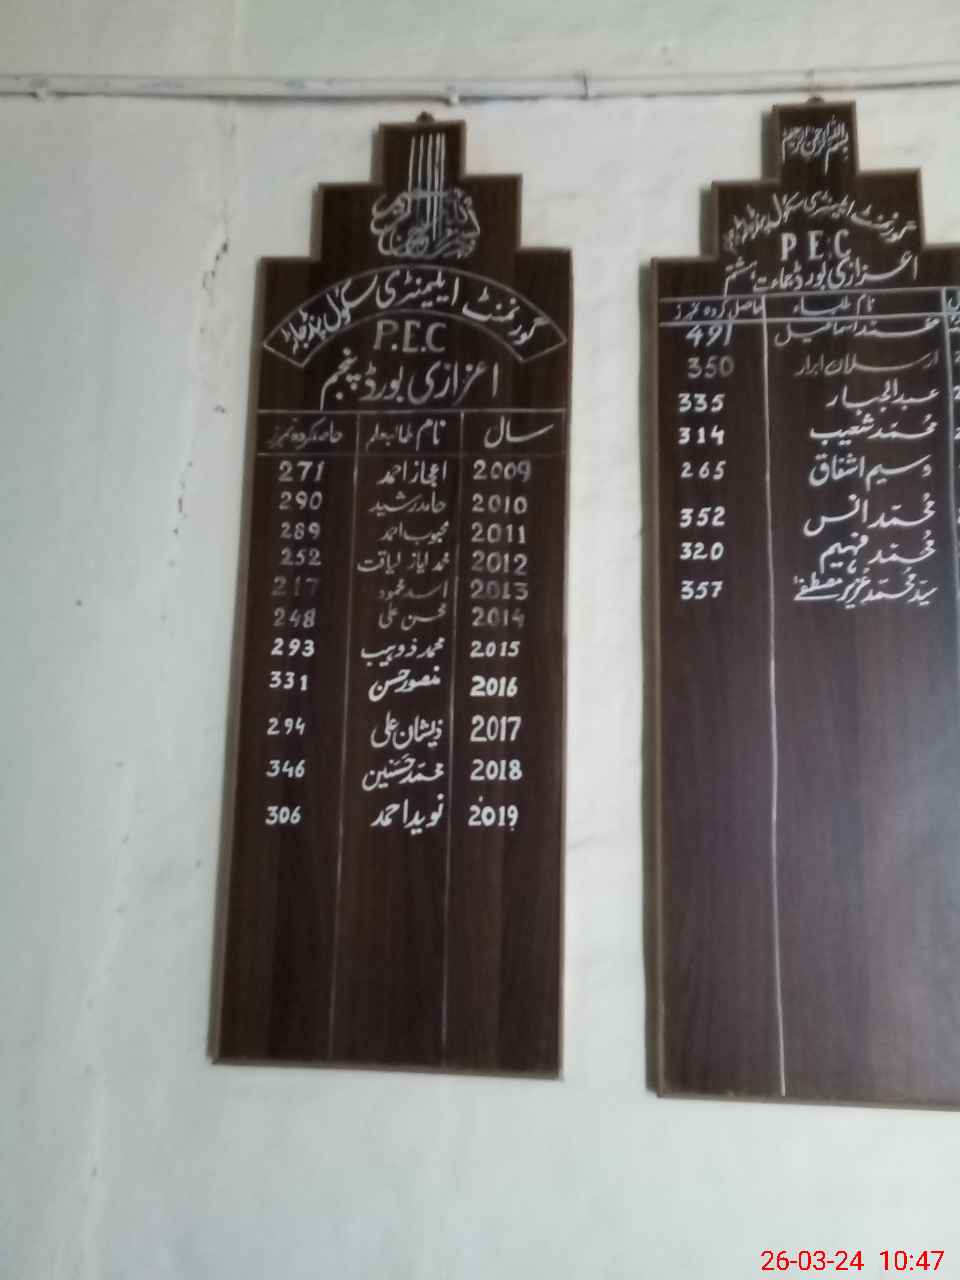 گورنمنٹ ایلیمنٹری سکول پنڈ جاٹہ
P.E.C
اعزازی بورڈ پنجم
سال نام طالبعلم حاصل کردہ نمبرز
2009 اعجاز احمد 271
2010 حامد رشید 290
2011 محبوب احمد 289
2012 محمد ایاز لیاقت 252
2013 اسد محمود 217
2014 محسن علی 248
2015 محمد ذوہیب 293
2016 منصور حسن 331
2017 ذیشان علی 294
2018 محمد حسنین 346
2019 نوید احمد 306
بسم اللہ الرحمن الرحیم
گورنمنٹ ایلیمنٹری سکول پنڈ
P.E.C
اعزازی بورڈ جماعت ہشتم
نام طلباء حاصل کردہ نمبرز
محمد اسماعیل 491
ارسلان ابرار 350
عبدالجبار 335
محمد شعیب 314
وسیم اشفاق 265
محمد انس 352
محمد فہیم 320
سید محمد عزیر مصطفےٰ 357
26-03-24 10:47